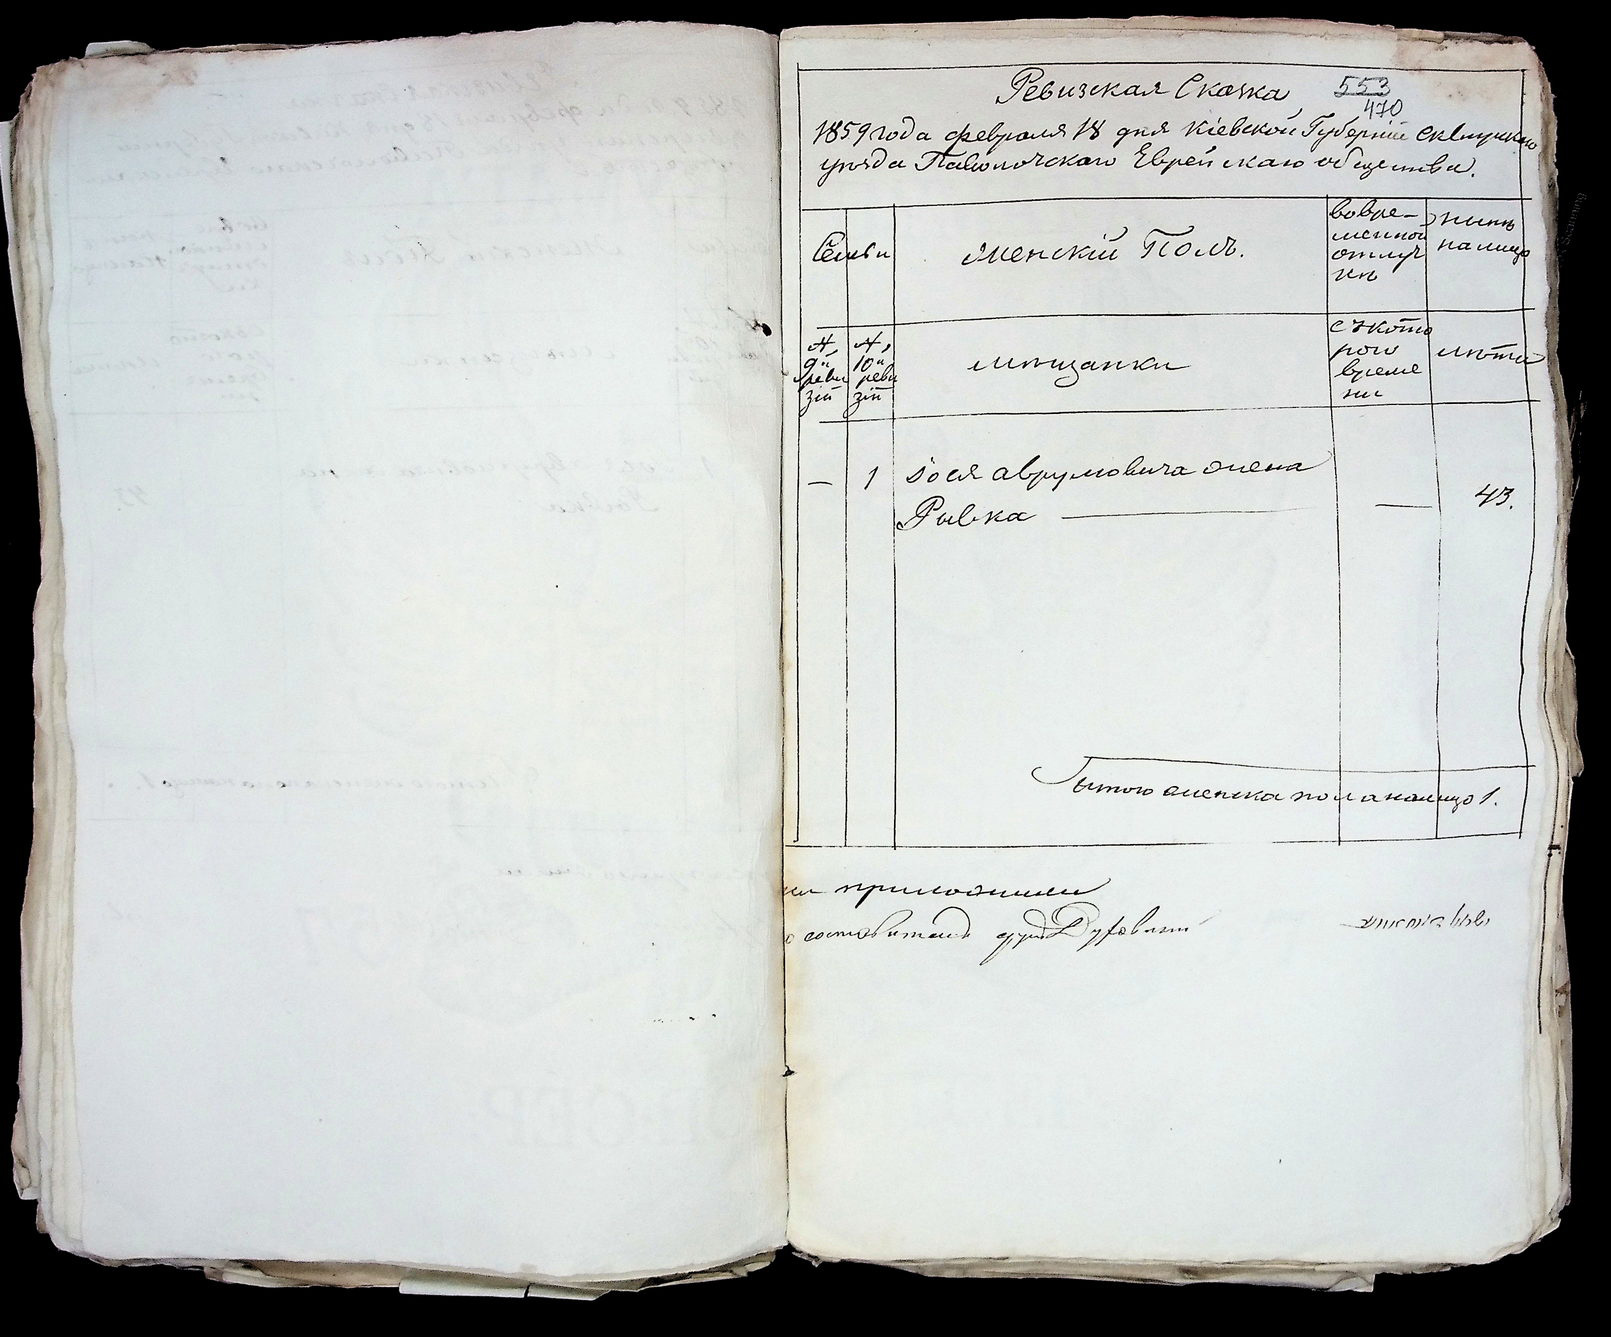 Ревизская Сказка
553
470
1859 года февраля 18 дня Кіевской Губерніи Сквирскаго
уѣзда Паволочскаго Еврейскаго общества.
Семьи
Женскій Полъ.
вовре-
менной
отлуч
кѣ
нынѣ
налицо
№
9й
реви
зіи
№
10й
реви
зіи
мѣщанки
съкото
раго
време
ни
лѣта
—
1
Іося Аврумовича жена
Рывка
—
43.
Итого женска пола налицо 1.
приложили